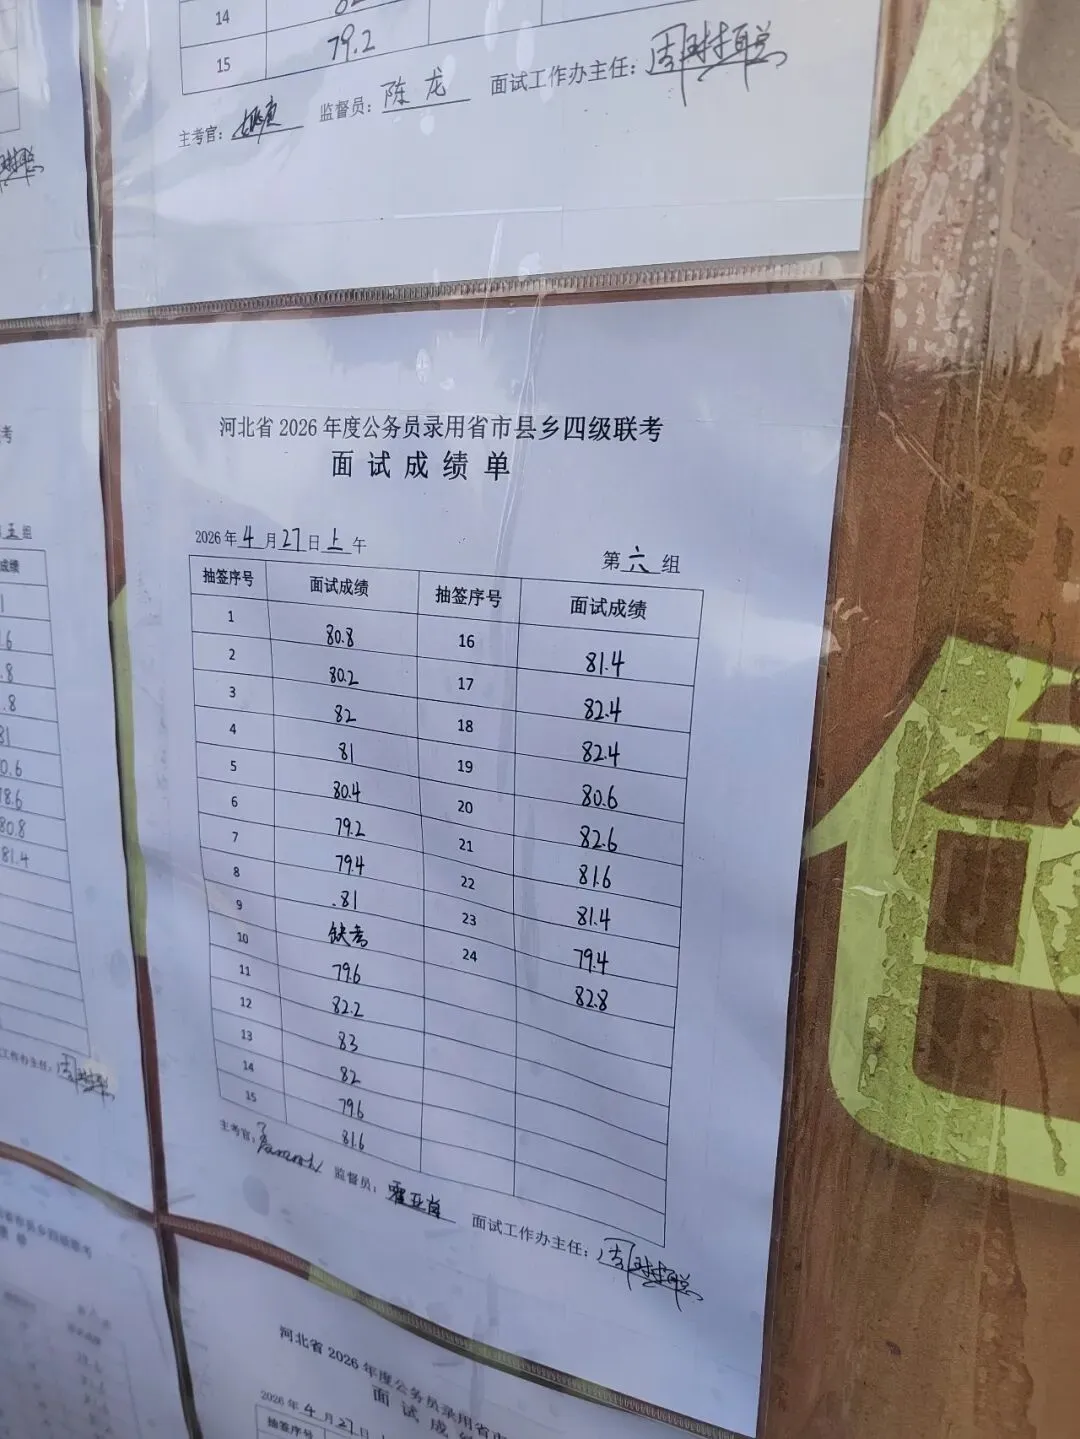 14
15 79.2
主考官： 监督员：陈龙 面试工作办主任：
河北省2026年度公务员录用省市县乡四级联考
面试成绩单
2026年4月27日上午 第六组
抽签序号 面试成绩 抽签序号 面试成绩
1 80.8 16 81.4
2 80.2 17 82.4
3 82 18 82.4
4 81 19 80.6
5 80.4 20 82.6
6 79.2 21 81.6
7 79.4 22 81.4
8 81 23 79.4
9 缺考 24 82.8
10 79.6
11 82.2
12 83
13 82
14 79.6
15 81.6
主考官： 监督员： 面试工作办主任：
考
五组
成绩
80.8
81.4
工作办主任：
河北省2026年度公务员录用省市
面试成绩
2026年4月27日
抽签序号